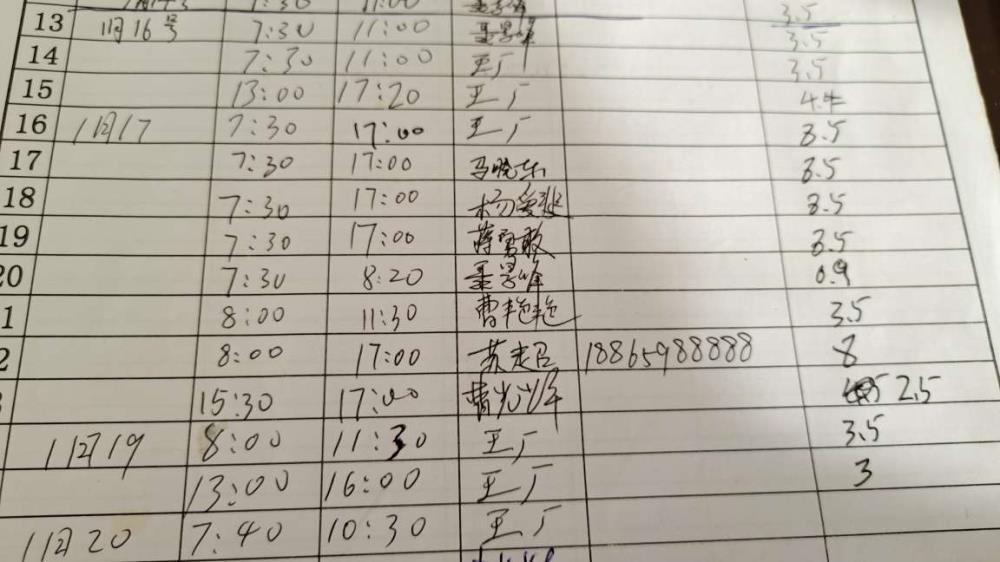 7:30 11:00 3.5
13 11月16号 7:30 11:00 3.5
14 7:30 11:00 王广 3.5
15 13:00 17:20 王广 4.4
16 11月17 7:30 17:00 王广 8.5
17 7:30 17:00 马晓东 8.5
18 7:30 17:00 杨爱 8.5
19 7:30 17:00 蒋勇敢 8.5
20 7:30 8:20 0.9
1 8:00 11:30 曹艳艳 3.5
2 8:00 17:00 苏超 18865988888 8
15:30 17:00 2.5
11月19 8:00 11:30 王广 3.5
13:00 16:00 王广 3
11月20 7:40 10:30 王广